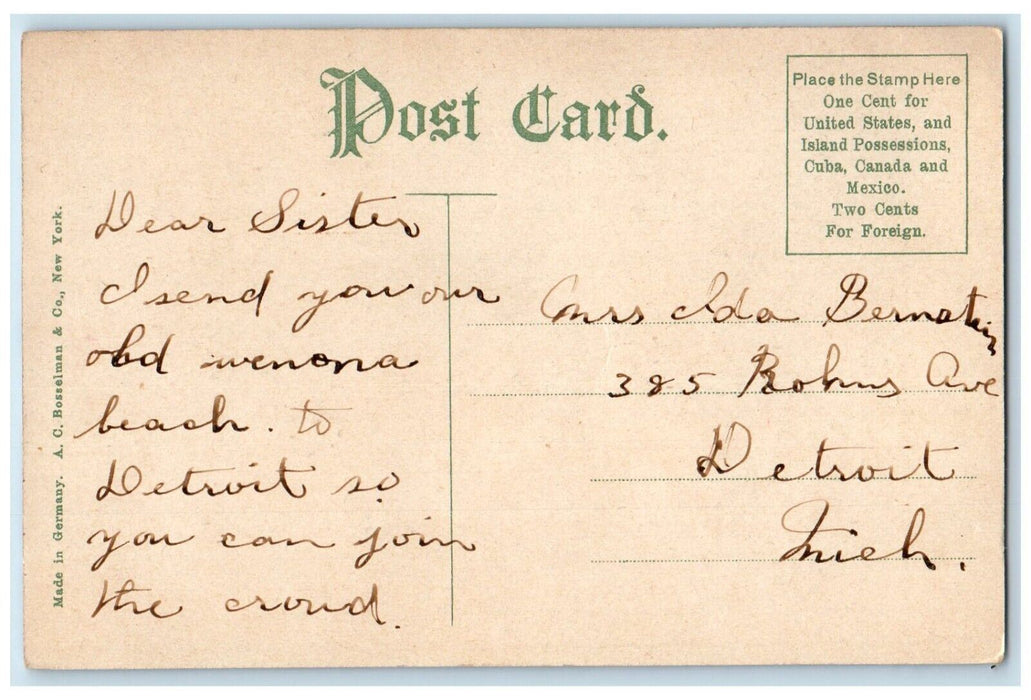 Post Card.
Place the Stamp Here
One Cent for
United States, and
Island Possessions,
Cuba, Canada and
Mexico.
Two Cents
For Foreign.
Made in Germany. A. C. Bosselman & Co., New York.
Dear Sister
I send you our
old wenona
beach. to
Detroit so
you can join
the crowd.
Mrs Ida Bernstein
385 Rohns Ave
Detroit
Mich.